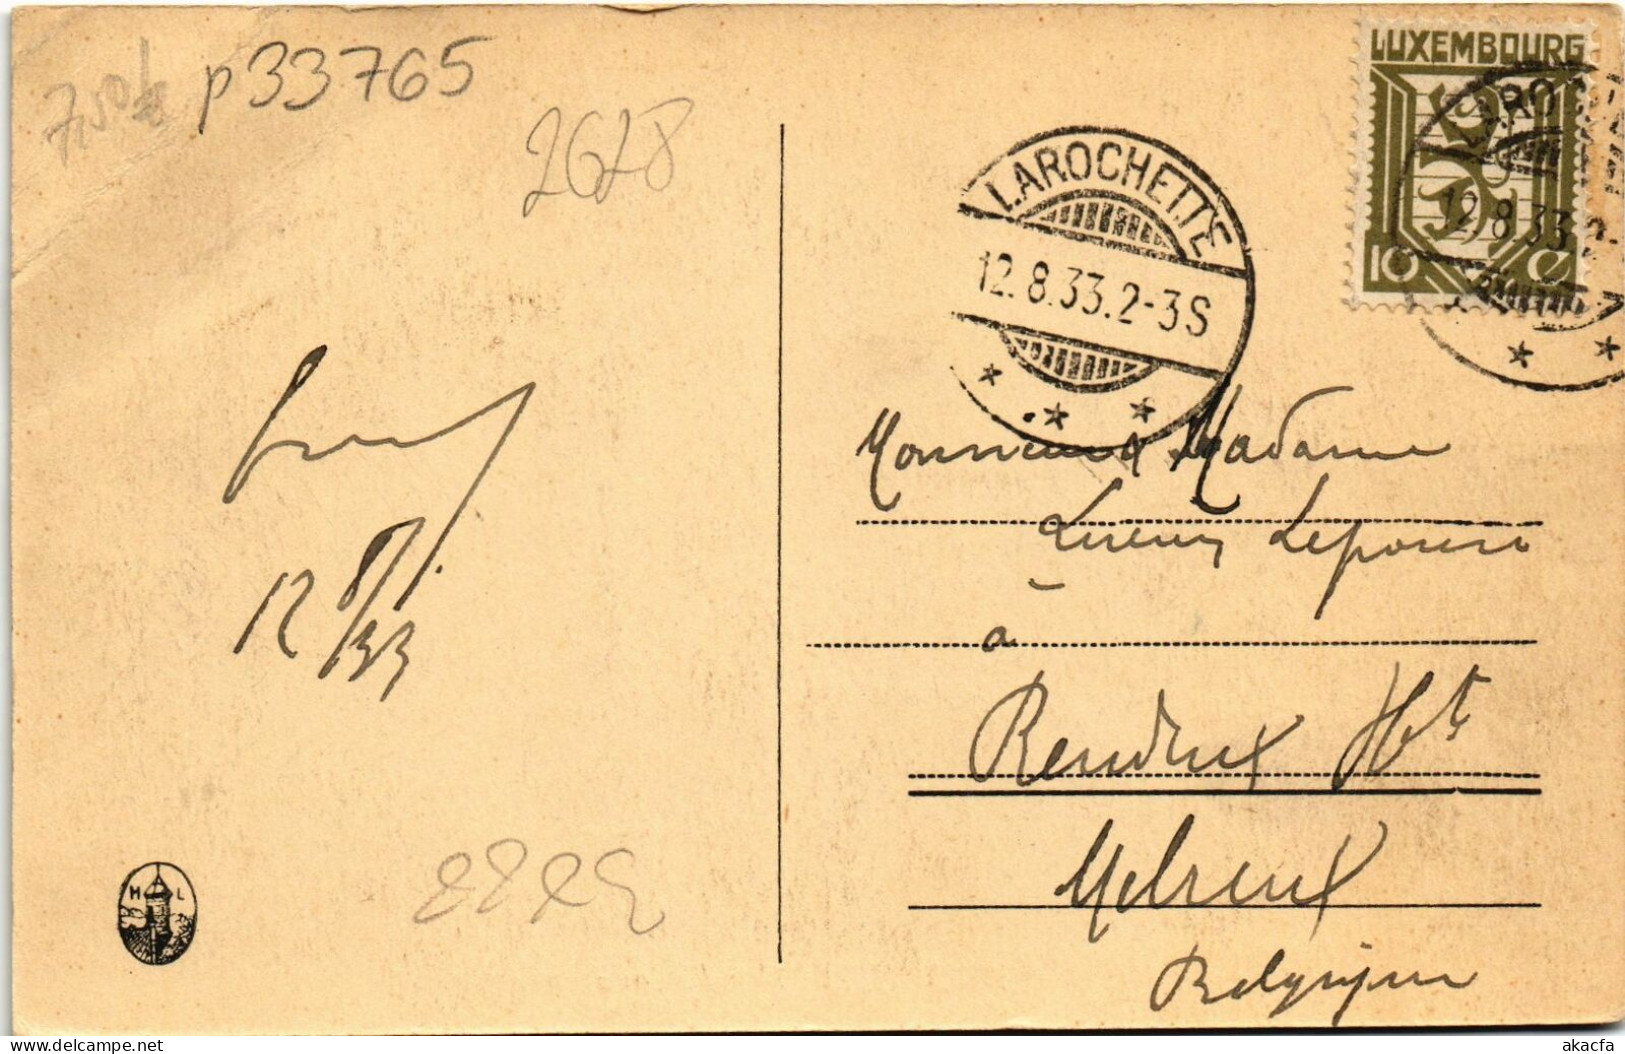 7,50
p33765
2628
LUXEMBOURG
10 c
LAROCHETTE
12.8.33.2-3S
LAROC
12.8.33.2-
Monsieur & Madame
à
Rendeux Ht
Melreux
Belgique
12/8/33
H L
delcampe.net
akacfa